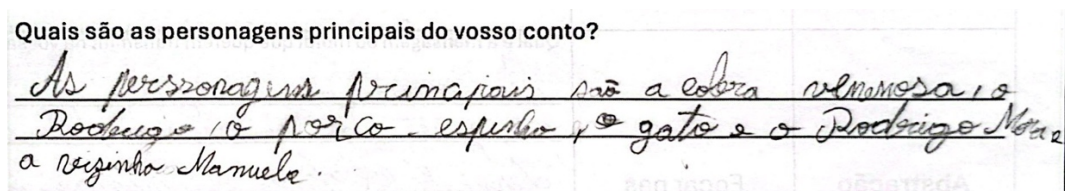 Quais são as personagens principais do vosso conto?
As perssonagens principais são a cobra venenosa, o
Rodrigo, o porco-espinho, o gato e o Rodrigo Mora e
a vizinha Manuela.